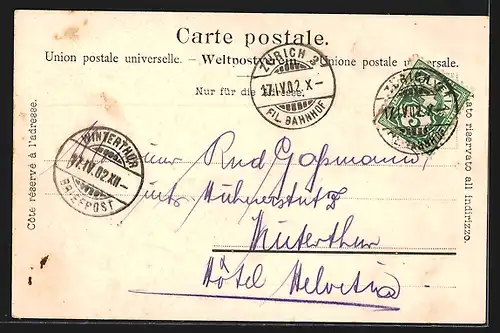 Carte postale.
Union postale universelle. – Weltpostverein. – Unione postale universale.
Nur für die Adresse.
Côte réservé à l'adresse.
Lato riservato all'indirizzo.
ZÜRICH 2
17.IV.02.X–
FIL. BAHNHOF
17.IV.02.X–
WINTERTHUR
17.IV.02.XII–
BRIEFPOST
Rud Gaßmann
Winterthur
Hôtel Helvetia